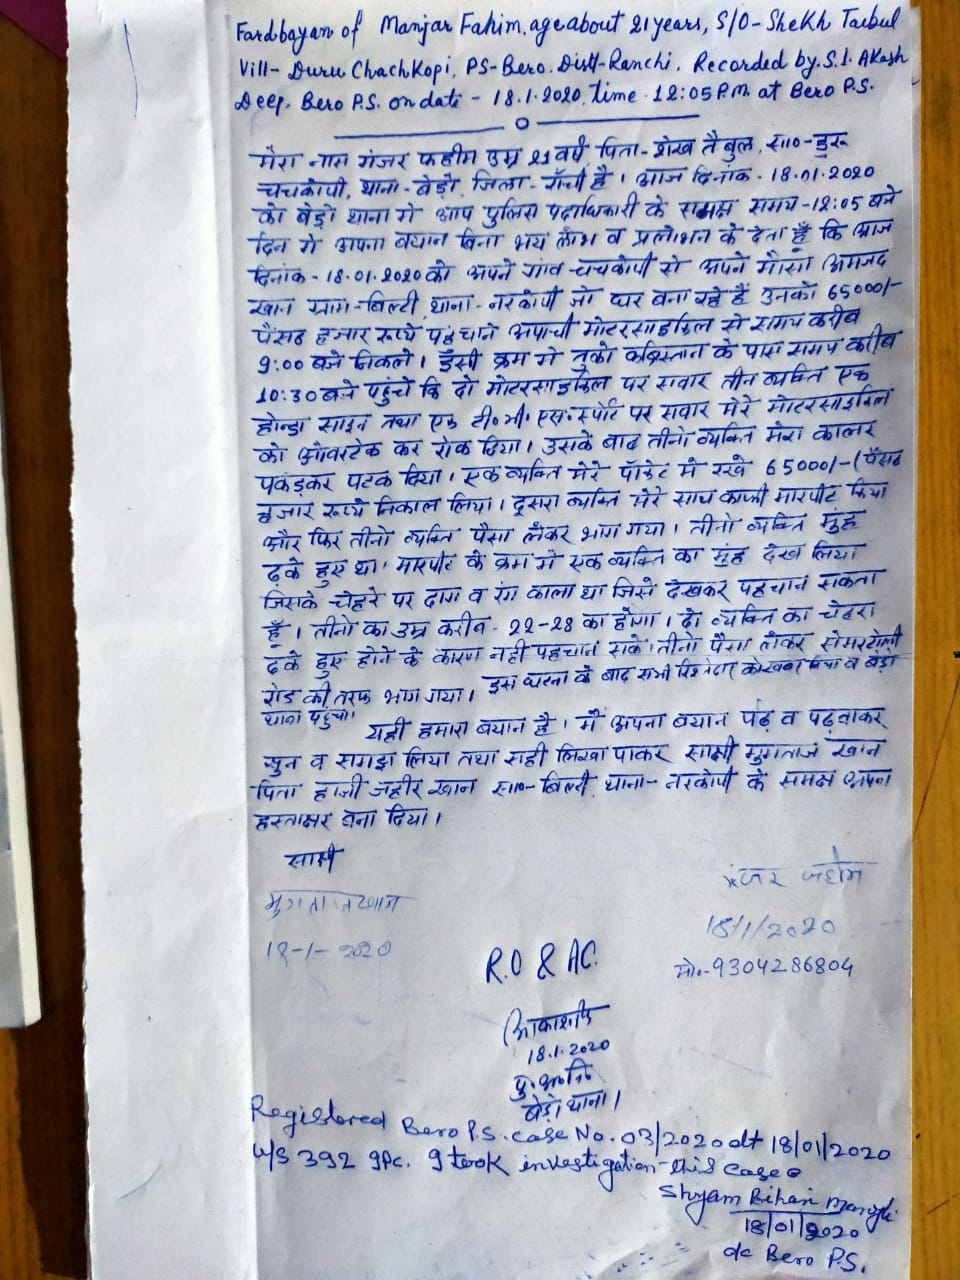 Fardbayan of Manjar Fahim, age about 21 years, S/O- Shekh Taibul
Vill- Duru Chachkopi, PS- Bero. Distt- Ranchi. Recorded by. S.I. Akash
Deep. Bero P.S. on date - 18.1.2020, time - 12:05 P.M. at Bero P.S.
मेरा नाम मंजर फहीम उम्र 21 वर्ष पिता- शेख तैबुल, सा०- डुरू
चचकोपी, थाना- बेड़ो, जिला- राँची है। आज दिनांक - 18.01.2020
को बेड़ो थाना में आप पुलिस पदाधिकारी के समक्ष समय - 12:05 बजे
दिन में अपना बयान बिना भय लोभ व प्रलोभन के देता हूँ कि आज
दिनांक - 18.01.2020 को अपने गांव चचकोपी से अपने मौसा अमजद
खान ग्राम- बिल्टी, थाना- नरकोपी जो घर बना रहे हैं उनको 65000/-
पैंसठ हजार रूपये पहुंचाने अपाची मोटरसाइकिल से समय करीब
9:00 बजे निकले। इसी क्रम में तुको कब्रिस्तान के पास समय करीब
10:30 बजे पहुंचे कि दो मोटरसाइकिल पर सवार तीन व्यक्ति एक
होन्डा साइन तथा एक टी० भी० एस० स्पोर्ट पर सवार मेरे मोटरसाइकिल
को ओवरटेक कर रोक दिया। उसके बाद तीनो व्यक्ति मेरा कालर
पकड़कर पटक दिया। एक व्यक्ति मेरे पॉकेट में रखे 65000/- (पैंसठ
हजार रूपये निकाल लिया। दुसरा व्यक्ति मेरे साथ काफी मारपीट किया
और फिर तीनो व्यक्ति पैसा लेकर भाग गया। तीनो व्यक्ति मुंह
ढ़के हुए था। मारपीट के क्रम में एक व्यक्ति का मुंह देख लिया
जिसके चेहरे पर दाग व रंग काला था जिसे देखकर पहचान सकता
हूँ। तीनो का उम्र करीब - 22-28 का होगा। दो व्यक्ति का चेहरा
ढ़के हुए होने के कारण नही पहचान सके। तीनो पैसा लेकर सेमरटोली
रोड की तरफ भाग गया। इस घटना के बाद सभी रिश्तेदार को खबर किया व बेड़ो
थाना पहुंचा।
यही हमारा बयान है। मैं अपना बयान पढ़ व पढ़वाकर
सुन व समझ लिया तथा सही लिखा पाकर साक्षी मुमताज खान
पिता हाजी जहीर खान सा०- बिल्टी, थाना- नरकोपी के समक्ष अपना
हस्ताक्षर बना दिया।
साक्षी
मुमताज खान
18-1-2020
मंजर फहीम
18/1/2020
मो०- 9304286804
R.O & AC.
18.1.2020
पु० अ० नि०
बेड़ो थाना।
Registered Bero P.S. case No. 03/2020 dt 18/01/2020
U/S 392 IPC. I took investigation this case
Shyam Bihari
18/01/2020
oc Bero P.S.